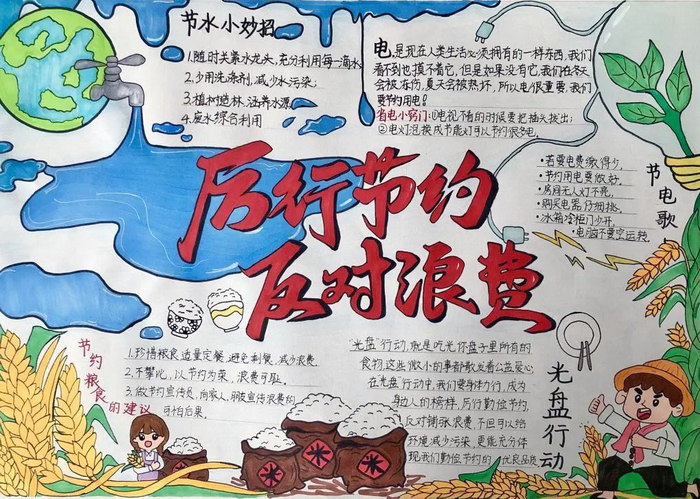 节水小妙招
1.随时关紧水龙头，充分利用每一滴水
2.少用洗涤剂，减少水污染；
3.植树造林，涵养水源
4.废水综合利用
电，是现在人类生活必须拥有的一样东西，我们
看不到也摸不着它，但是如果没有它，我们在冬天
会被冻伤，夏天会被热坏，所以电很重要，我们
要节约用电！
省电小窍门：①电视不看的时候要把插头拔出；
②电灯泡换成节能灯可以节约很多电。
节电歌
·若要电费缴得少，
·节约用电要做好。
·房间无人灯不亮，
·购买电器仔细挑。
·冰箱冷柜门少开，
·电脑不要空运转
厉行节约
反对浪费
节约粮食的建议
1.珍惜粮食，适量定餐，避免剩餐，减少浪费
2.不攀比，以节约为荣，浪费可耻。
3.做节约宣传员，向家人，朋友宣传浪费的
可怕后果
光盘行动
"光盘"行动，就是吃光你盘子里所有的
食物，这些微小的事都散发着公益爱心
在光盘行动中，我们要身体力行，成为
身边人的榜样，厉行勤俭节约，
反对铺张浪费，不但可以给
环境减少污染，更能充分体
现我们勤俭节约的优良品质
米
米
米